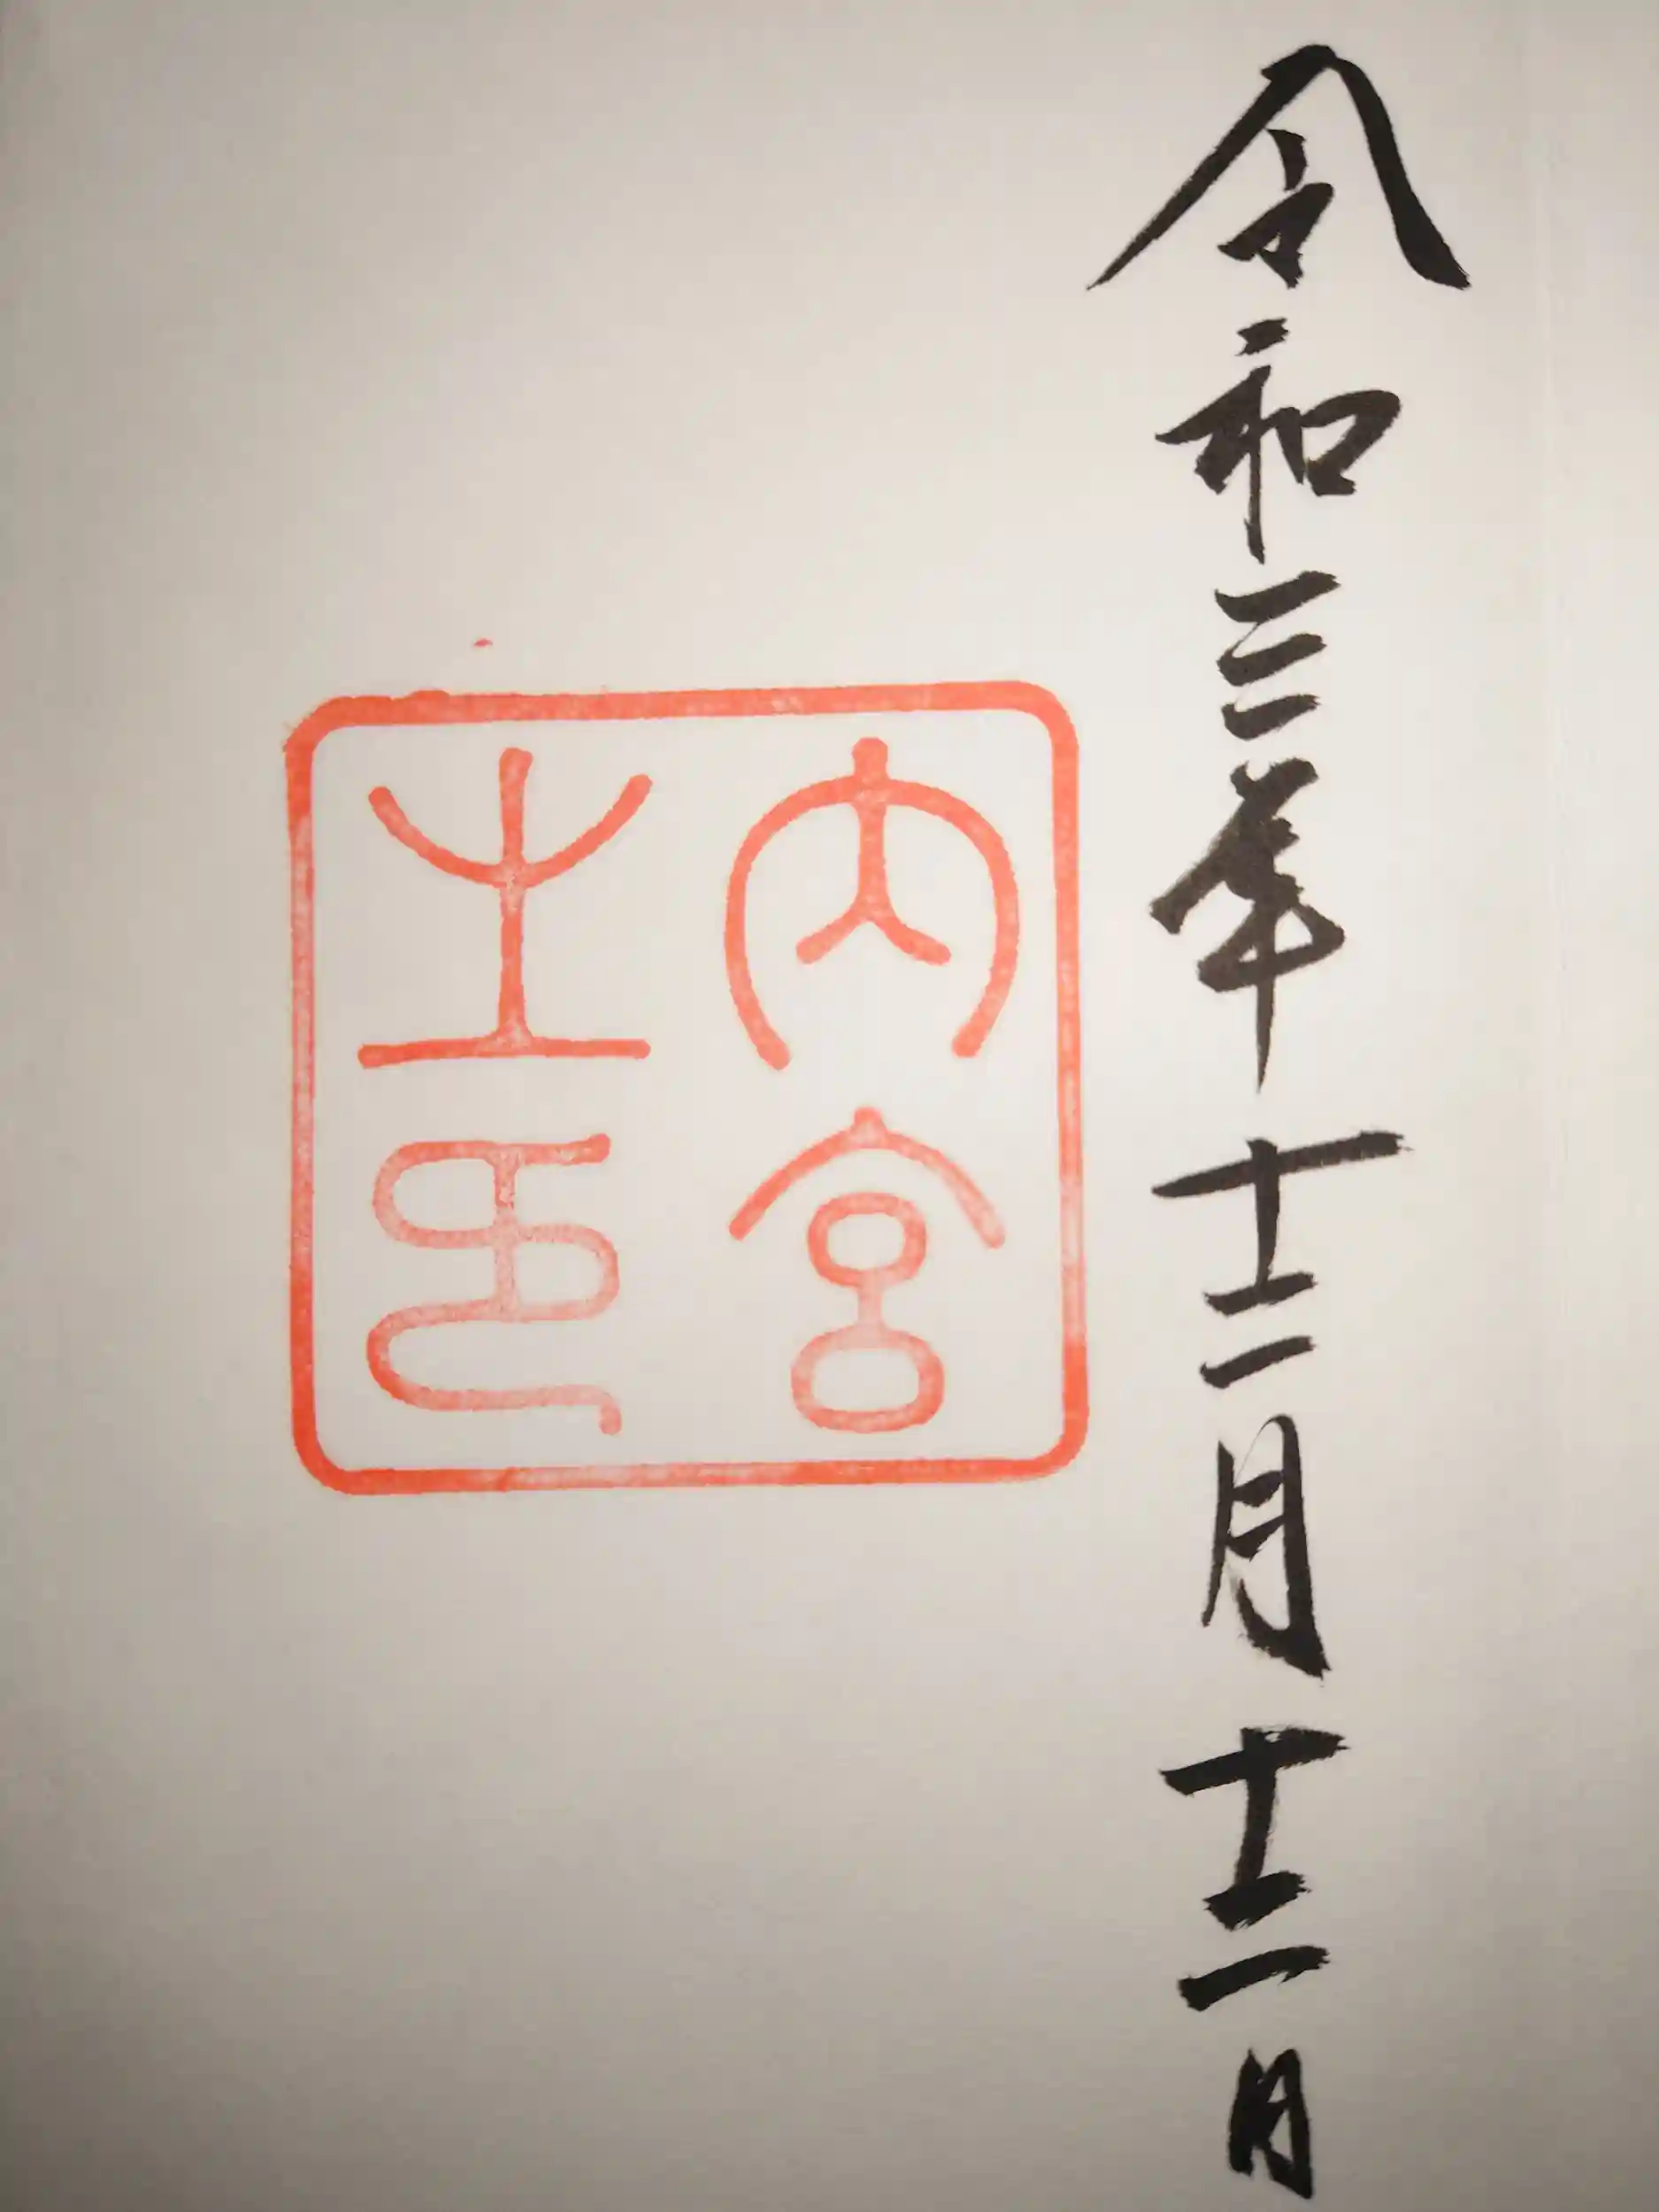 令和三年十二月十二日
内宮
之印